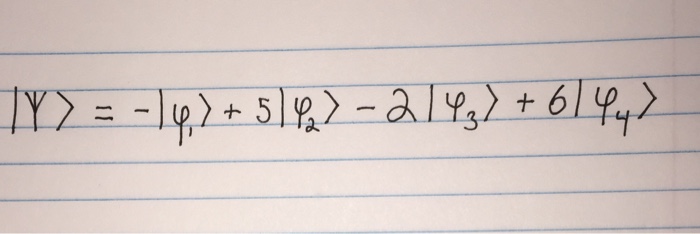 |Ψ⟩ = -|φ₁⟩ + 5|φ₂⟩ - 2|φ₃⟩ + 6|φ₄⟩